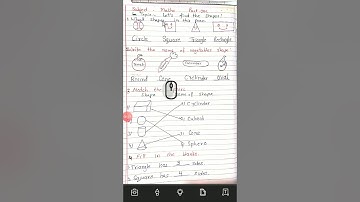 Subject - Maths Part one
Topic - Let's find the shapes!
Which shape in this pen.
Circle Square Triangle Rectangle
the name of vegetables shape
Round Cone Cylinder Oval
2. Match the
Shape of shape
1) Cylinder
2) Cuboid
3) Cone
4) Sphere
4. Fill in the blank.
Triangle has 3 sides.
Square has 4 sides.